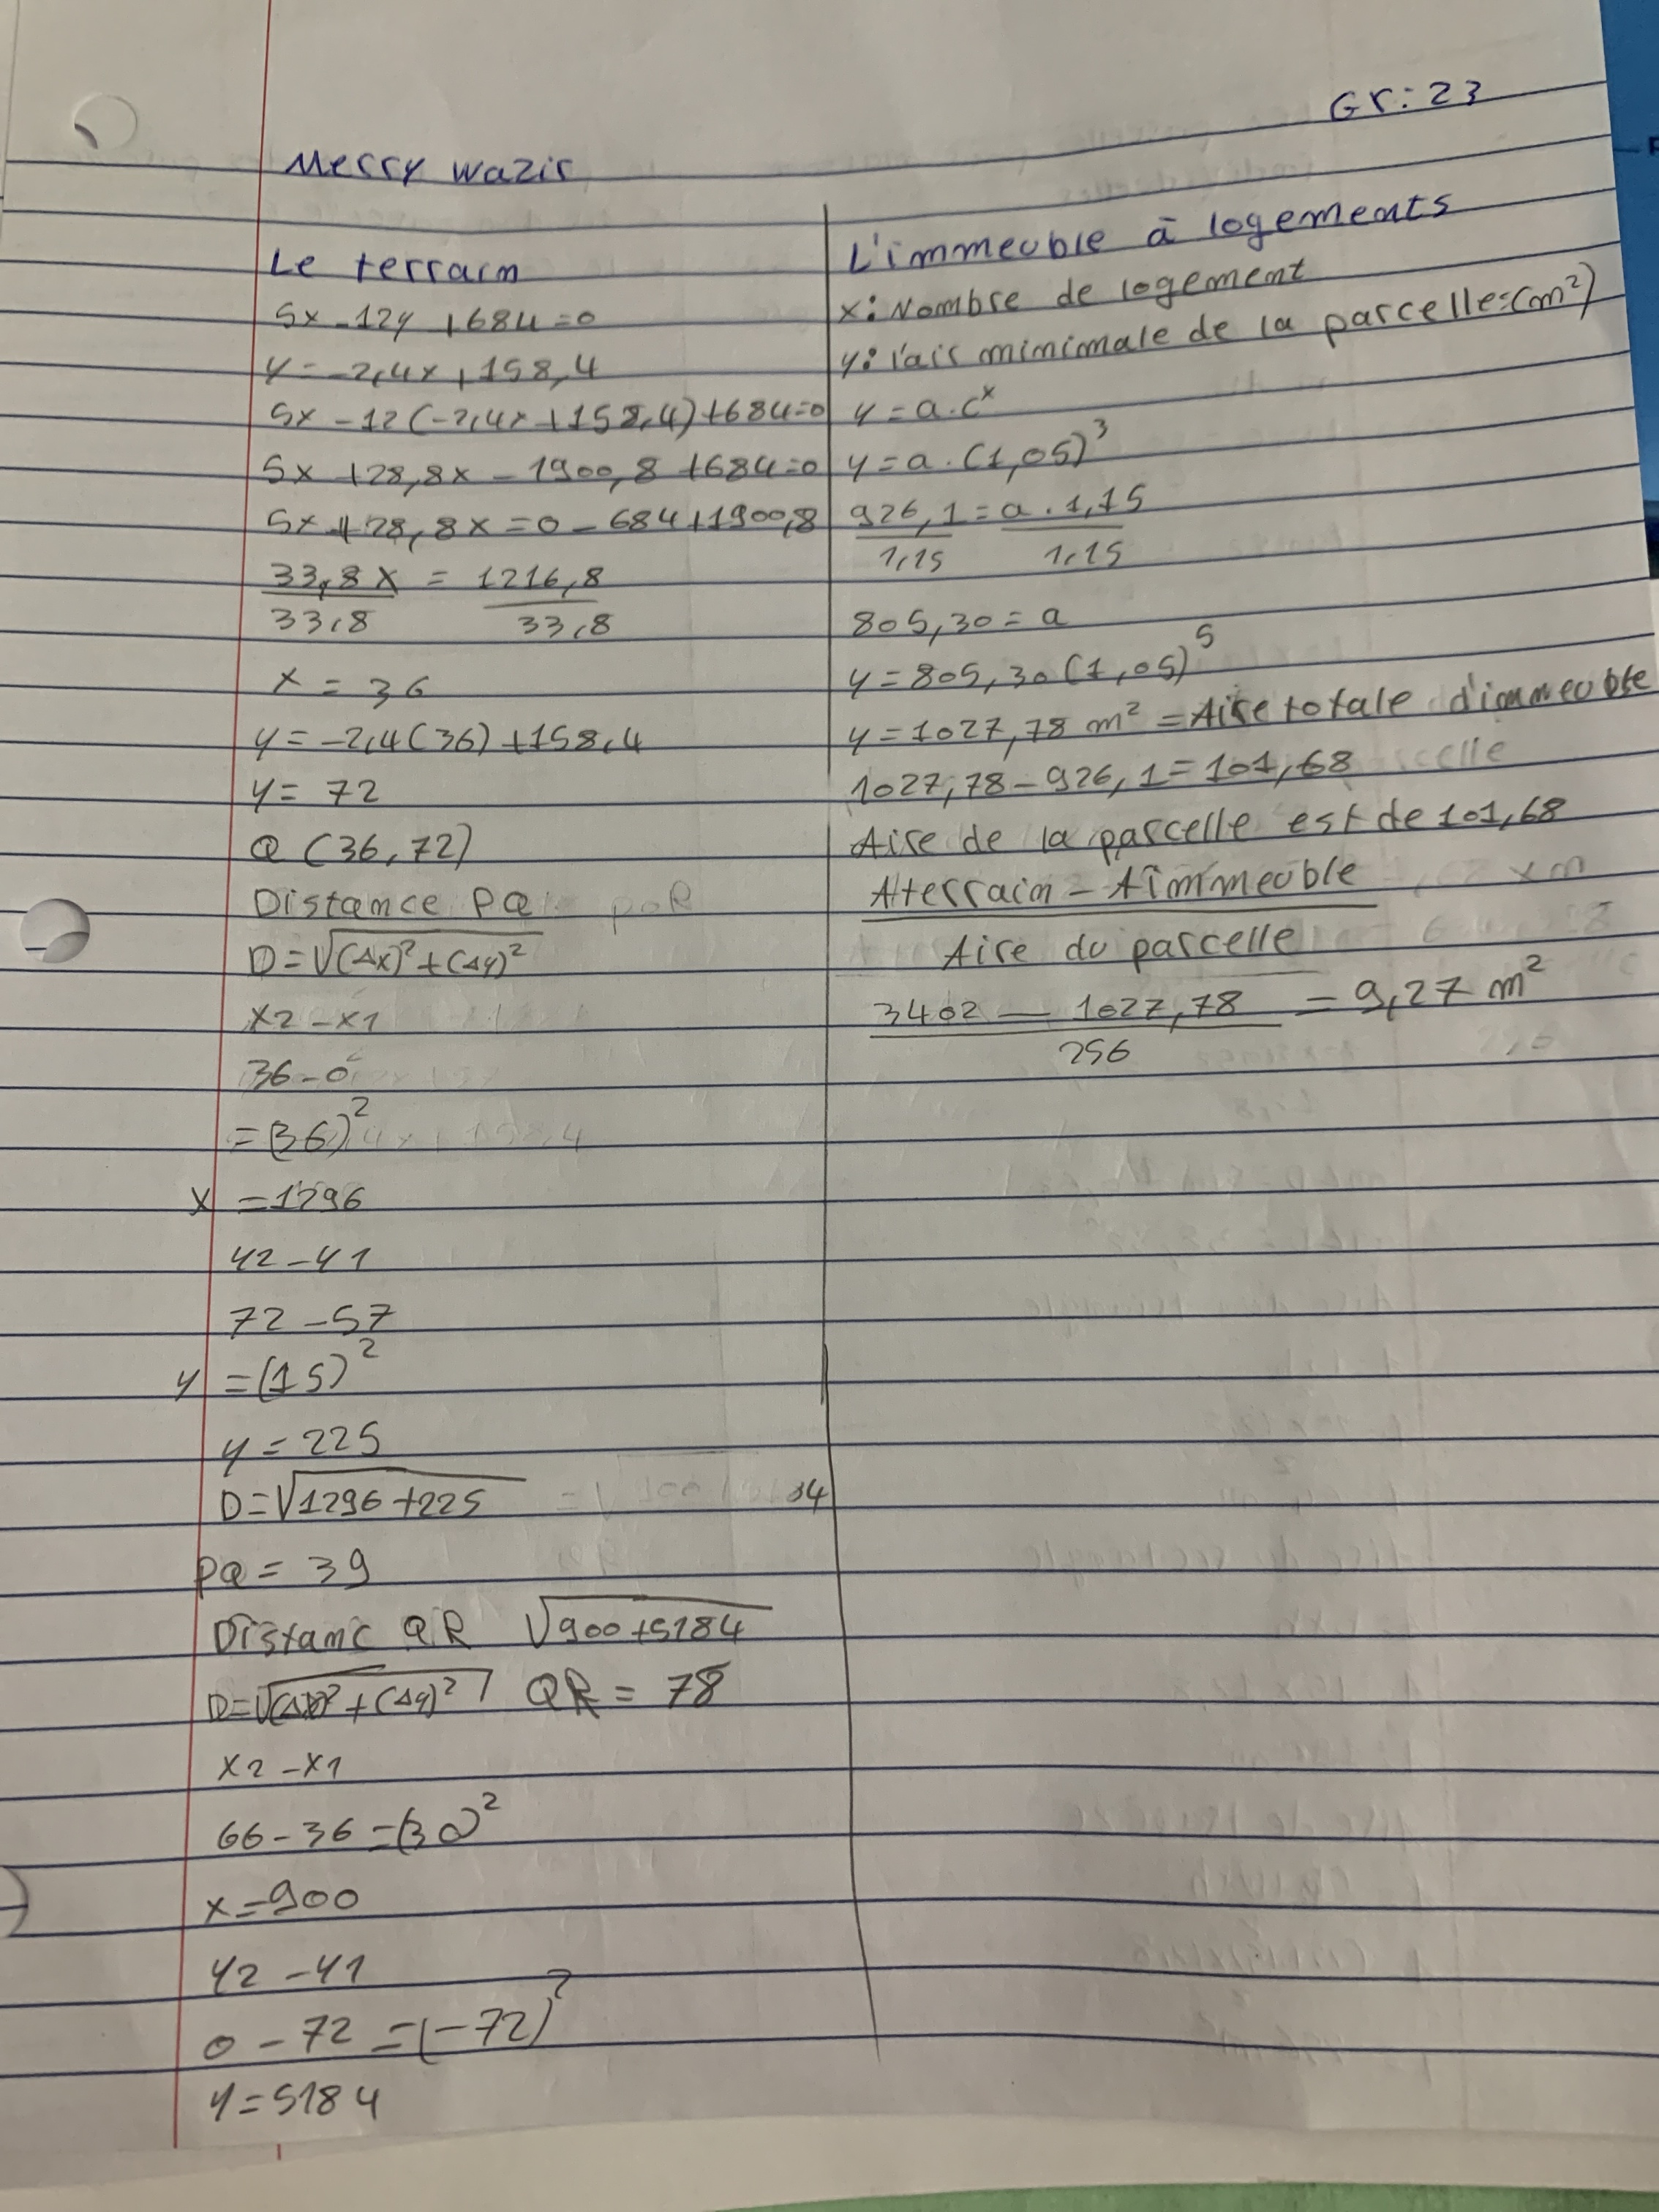 Gr: 23
Merry wazir
Le terrain
5x - 12y + 684 = 0
y = -2,4x + 158,4
5x - 12 (-2,4x + 158,4) + 684 = 0
5x + 28,8x - 1900,8 + 684 = 0
5x + 28,8x = 0 - 684 + 1900,8
33,8x = 1216,8
33,8 33,8
x = 36
y = -2,4(36) + 158,4
y = 72
Q (36, 72)
Distance PQ
D = √(Δx)² + (Δy)²
x2 - x1
36 - 0
= (36)²
x = 1296
y2 - y1
72 - 57
y = (15)²
y = 225
D = √1296 + 225
PQ = 39
Distanc QR √900 + 5184
D = √(Δx)² + (Δy)² QR = 78
x2 - x1
66 - 36 = (30)²
x = 900
y2 - y1
0 - 72 = (-72)²
y = 5184
L'immeuble à logements
x: Nombre de logement
y: l'air minimale de la parcelle: (m²)
y = a . c^x
y = a . (1,05)³
926,1 = a . 1,15
1,15 1,15
805,30 = a
y = 805,30 (1,05)⁵
y = 1027,78 m² = Aire totale d'immeuble
1027,78 - 926,1 = 101,68
Aire de la parcelle est de 101,68
Aterrain - Aimmeuble
Aire du parcelle
3402 - 1027,78 = 9,27 m²
256
34